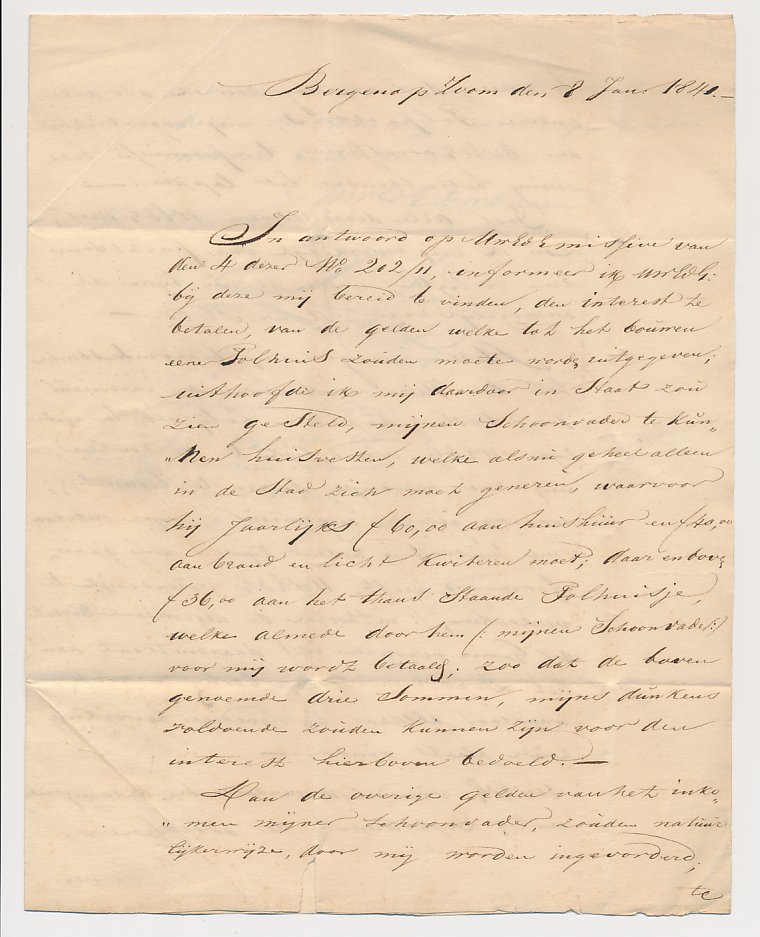 Bergen op Zoom den 8 Jan. 1841.—
In antwoord op UwEdG missive van
den 4 dezer No 212/11, informeer ik UwEdG:
bij deze mij bereid te vinden, den interest te
betalen, van de gelden welke tot het bouwen
eener Tolhuis zouden moete worde, uitgegeven;
uithoofde ik mij daardoor in Staat zou
zien gesteld, mijnen Schoonvader te kun„
„nen huisvesten, welke alsnu geheel alleen
in de Stad zich moet generen, waarvoor
hij Jaarlijks f 60,00 aan huishuur en f 40,00
aan brand en licht kwiteren moet; daarenbove
f 36,00 aan het thans Staande Tolhuisje,
welke almede door hem (: mijnen Schoonvader:)
voor mij wordt betaald; zoo dat de boven
genoemde drie Sommen, mijns dunkens
voldoende zouden kunnen zijn voor den
interest hierboven bedoeld.—
Aan de overige gelden van het inko„
„men mijner Schoonvader, zouden natuur
lijkerwijze, door mij worden ingevorderd;
te